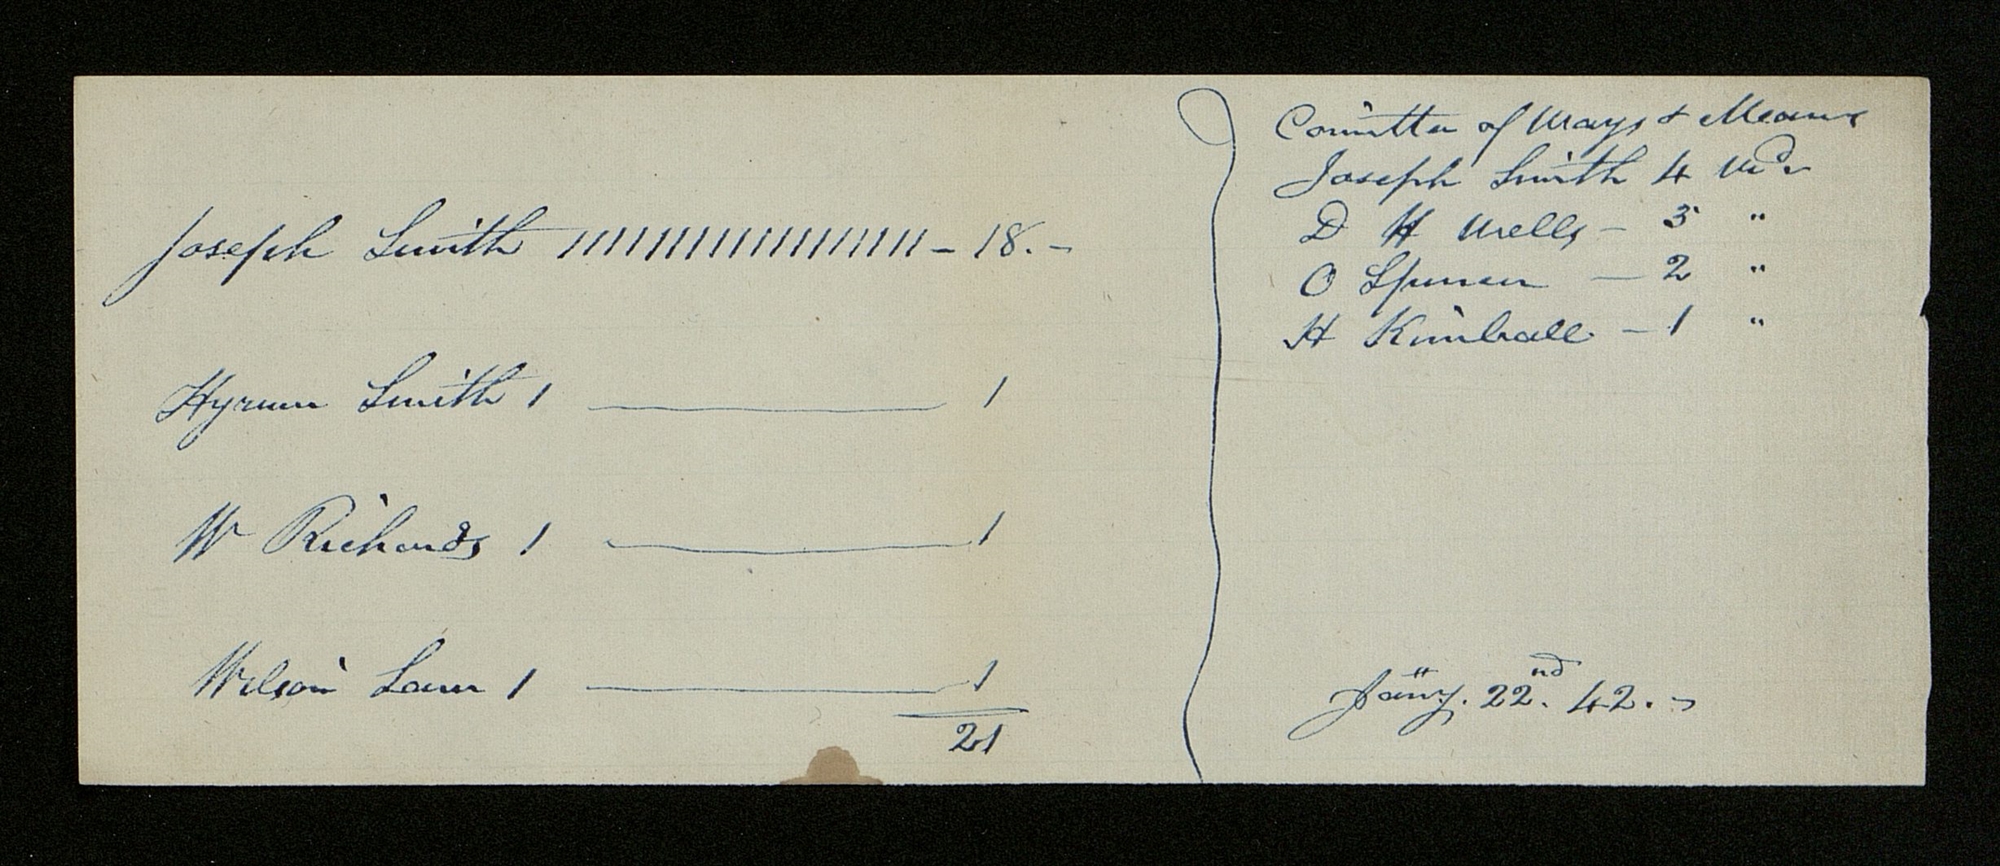 Joseph Smith //////////////////– 18. –
Hyrum Smith 1 —— 1
W Richards 1 —— 1
Wilson Law 1 —— 1
21
Comittee of Ways & Means
Joseph Smith 4 Wds
D H Wells – 3 "
O Spencer – 2 "
H Kimball – 1 "
Jany. 22nd. 42. –